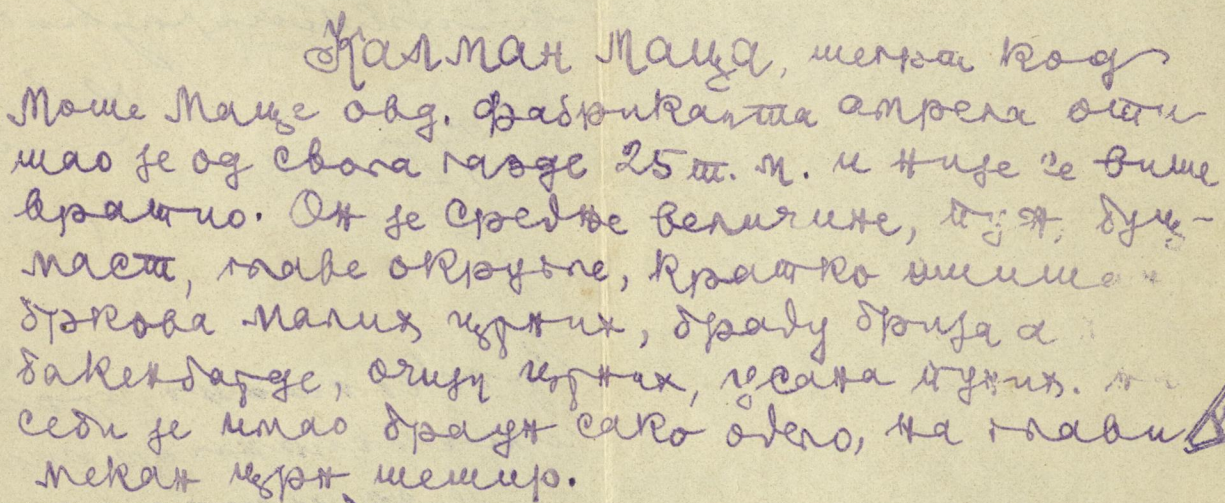 Калман Маца, шегрт код
Моше Маце овд. фабриканта амрела оти-
шао је од свога газде 25 т. м. и није се више
вратио. Он је средње величине, пун, буц-
маст, главе округле, кратко ошишан
бркова малих црних, браду брија а
бакенбарде, очију црних, усана пуних. на
себи је имао браун сако одело, на глави
мекан црн шешир.